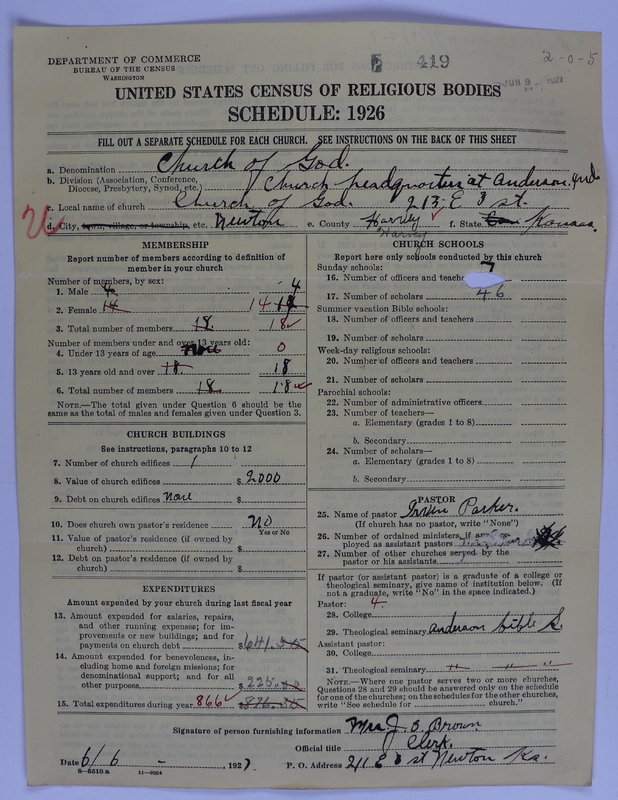 DEPARTMENT OF COMMERCE
BUREAU OF THE CENSUS
WASHINGTON
419
2-0-5
UNITED STATES CENSUS OF RELIGIOUS BODIES
SCHEDULE: 1926
FILL OUT A SEPARATE SCHEDULE FOR EACH CHURCH. SEE INSTRUCTIONS ON THE BACK OF THIS SHEET
a. Denomination Church of God.
b. Division (Association, Conference, Diocese, Presbytery, Synod, etc.) Church headquarters at Anderson, Ind.
c. Local name of church Church of God. 213 E 3 st.
d. City, town, village, or township, etc. Newton e. County Harvey f. State Kansas.
Harvey
MEMBERSHIP
Report number of members according to definition of
member in your church
Number of members, by sex:
1. Male 4 4
2. Female 14 14
3. Total number of members 18 18
Number of members under and over 13 years old:
4. Under 13 years of age none 0
5. 13 years old and over 18 18
6. Total number of members 18 18
NOTE.—The total given under Question 6 should be
the same as the total of males and females given under Question 3.
CHURCH BUILDINGS
See instructions, paragraphs 10 to 12
7. Number of church edifices 1
8. Value of church edifices $ 2000
9. Debt on church edifices none $
10. Does church own pastor's residence No
Yes or No
11. Value of pastor's residence (if owned by
church) $
12. Debt on pastor's residence (if owned by
church) $
EXPENDITURES
Amount expended by your church during last fiscal year
13. Amount expended for salaries, repairs,
and other running expenses; for im-
provements or new buildings; and for
payments on church debt $ 641.
14. Amount expended for benevolences, in-
cluding home and foreign missions; for
denominational support; and for all
other purposes $ 225.
15. Total expenditures during year 866 $
CHURCH SCHOOLS
Report here only schools conducted by this church
Sunday schools:
16. Number of officers and teach 7
17. Number of scholars 46
Summer vacation Bible schools:
18. Number of officers and teachers
19. Number of scholars
Week-day religious schools:
20. Number of officers and teachers
21. Number of scholars
Parochial schools:
22. Number of administrative officers
23. Number of teachers—
a. Elementary (grades 1 to 8)
b. Secondary
24. Number of scholars—
a. Elementary (grades 1 to 8)
b. Secondary
PASTOR
25. Name of pastor Parker.
(If church has no pastor, write "None")
26. Number of ordained ministers, if any, em-
ployed as assistant pastors
27. Number of other churches served by the
pastor or his assistants
If pastor (or assistant pastor) is a graduate of a college or
theological seminary, give name of institution below. (If
not a graduate, write "No" in the space indicated.)
Pastor: 4
28. College
29. Theological seminary anderson bible S.
Assistant pastor:
30. College
31. Theological seminary " " "
NOTE.—Where one pastor serves two or more churches,
Questions 28 and 29 should be answered only on the schedule
for one of the churches; on the schedules for the other churches,
write "See schedule for church."
Signature of person furnishing information Mrs J. O. Brown
Official title Clerk.
Date 6/6 - , 1927 P. O. Address 211 E 3 st Newton Ks.
8-5518a 11-9054